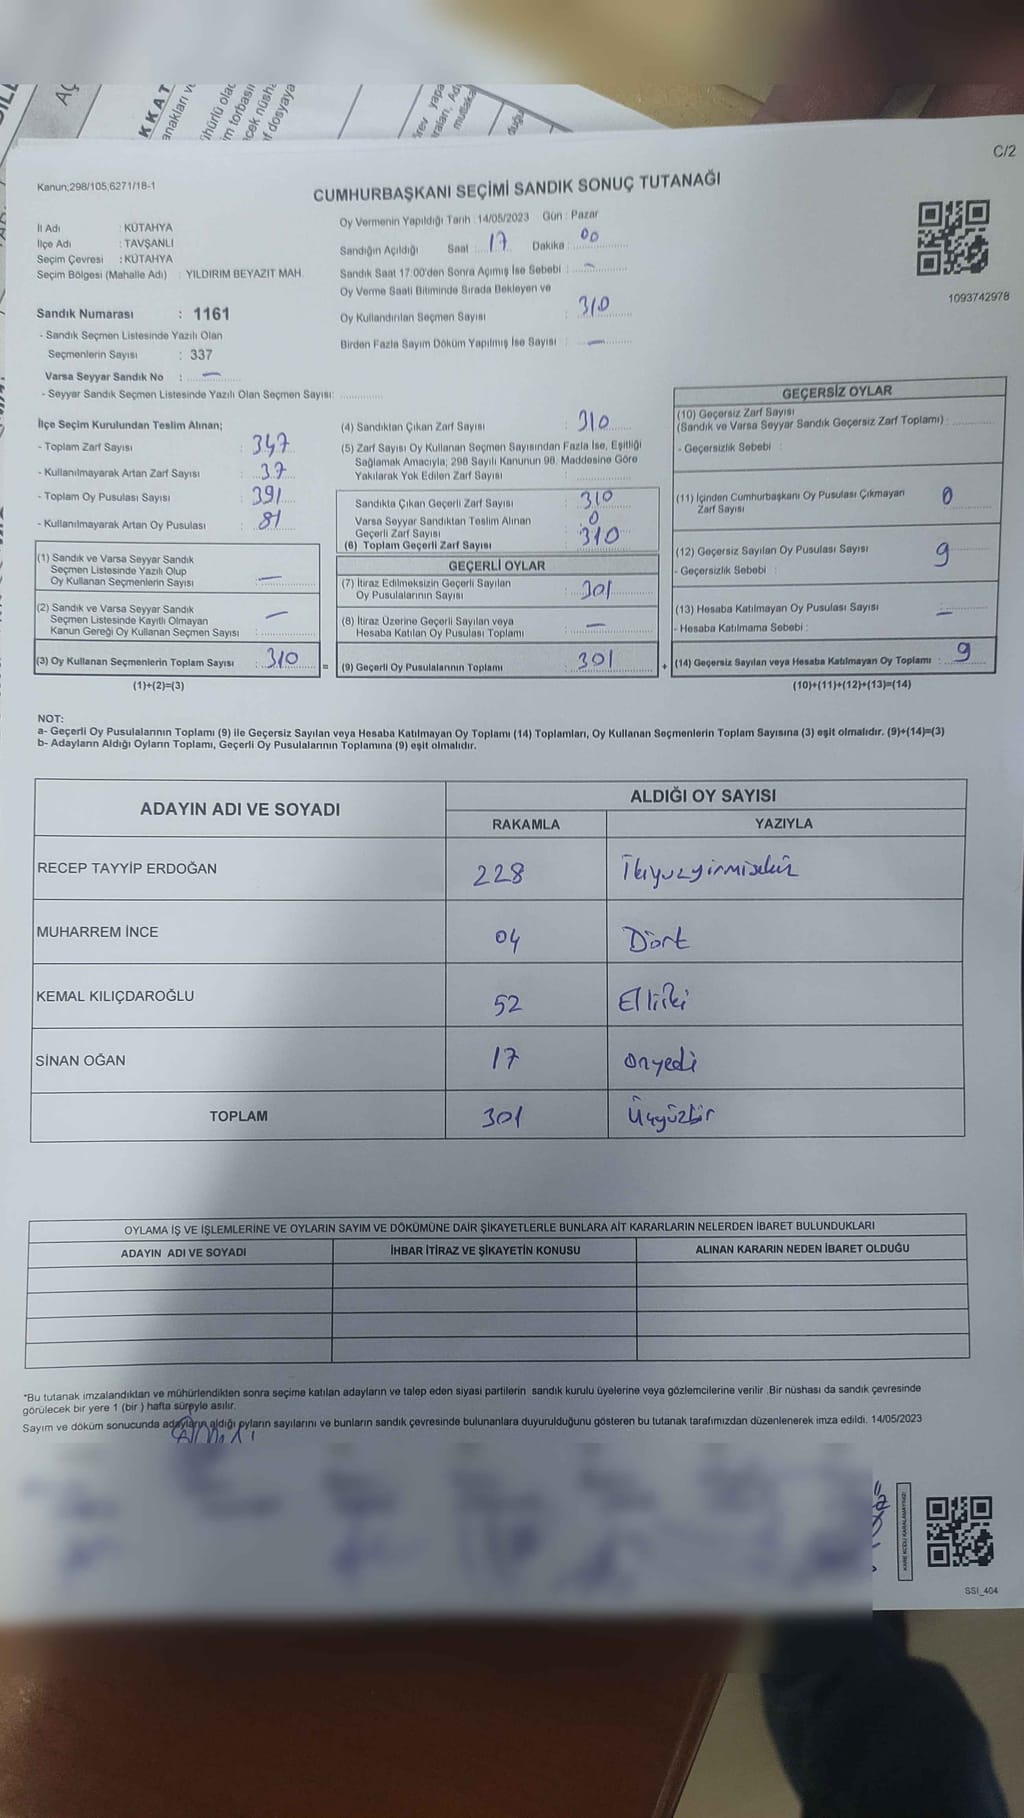 KKAT
C/2
Kanun;298/105;6271/18-1
CUMHURBAŞKANI SEÇİMİ SANDIK SONUÇ TUTANAĞI
İl Adı : KÜTAHYA
İlçe Adı : TAVŞANLI
Seçim Çevresi : KÜTAHYA
Seçim Bölgesi (Mahalle Adı) : YILDIRIM BEYAZIT MAH.
Oy Vermenin Yapıldığı Tarih : 14/05/2023 Gün : Pazar
Sandığın Açıldığı Saat : 17 Dakika : 00
Sandık Saat 17.00'den Sonra Açımış İse Sebebi : -
Oy Verme Saati Bitiminde Sırada Bekleyen ve
Oy Kullandırılan Seçmen Sayısı : 310
Birden Fazla Sayım Döküm Yapılmış İse Sayısı : -
1093742978
Sandık Numarası : 1161
- Sandık Seçmen Listesinde Yazılı Olan
Seçmenlerin Sayısı : 337
Varsa Seyyar Sandık No : -
- Seyyar Sandık Seçmen Listesinde Yazılı Olan Seçmen Sayısı:
İlçe Seçim Kurulundan Teslim Alınan;
- Toplam Zarf Sayısı : 347
- Kullanılmayarak Artan Zarf Sayısı : 37
- Toplam Oy Pusulası Sayısı : 391
- Kullanılmayarak Artan Oy Pusulası : 81
(1) Sandık ve Varsa Seyyar Sandık
Seçmen Listesinde Yazılı Olup
Oy Kullanan Seçmenlerin Sayısı : -
(2) Sandık ve Varsa Seyyar Sandık
Seçmen Listesinde Kayıtlı Olmayan
Kanun Gereği Oy Kullanan Seçmen Sayısı : -
(3) Oy Kullanan Seçmenlerin Toplam Sayısı : 310
(1)+(2)=(3)
(4) Sandıktan Çıkan Zarf Sayısı : 310
(5) Zarf Sayısı Oy Kullanan Seçmen Sayısından Fazla İse, Eşitliği
Sağlamak Amacıyla; 298 Sayılı Kanunun 98. Maddesine Göre
Yakılarak Yok Edilen Zarf Sayısı :
Sandıkta Çıkan Geçerli Zarf Sayısı : 310
Varsa Seyyar Sandıktan Teslim Alınan
Geçerli Zarf Sayısı : 0
(6) Toplam Geçerli Zarf Sayısı : 310
GEÇERLİ OYLAR
(7) İtiraz Edilmeksizin Geçerli Sayılan
Oy Pusulalarının Sayısı : 301
(8) İtiraz Üzerine Geçerli Sayılan veya
Hesaba Katılan Oy Pusulası Toplamı : -
= (9) Geçerli Oy Pusulalarının Toplamı : 301
GEÇERSİZ OYLAR
(10) Geçersiz Zarf Sayısı
(Sandık ve Varsa Seyyar Sandık Geçersiz Zarf Toplamı) :
- Geçersizlik Sebebi :
(11) İçinden Cumhurbaşkanı Oy Pusulası Çıkmayan
Zarf Sayısı 0
(12) Geçersiz Sayılan Oy Pusulası Sayısı 9
- Geçersizlik Sebebi :
(13) Hesaba Katılmayan Oy Pusulası Sayısı : -
- Hesaba Katılmama Sebebi :
+ (14) Geçersiz Sayılan veya Hesaba Katılmayan Oy Toplamı : 9
(10)+(11)+(12)+(13)=(14)
NOT:
a- Geçerli Oy Pusulalarının Toplamı (9) ile Geçersiz Sayılan veya Hesaba Katılmayan Oy Toplamı (14) Toplamları, Oy Kullanan Seçmenlerin Toplam Sayısına (3) eşit olmalıdır. (9)+(14)=(3)
b- Adayların Aldığı Oyların Toplamı, Geçerli Oy Pusulalarının Toplamına (9) eşit olmalıdır.
ADAYIN ADI VE SOYADI ALDIĞI OY SAYISI
RAKAMLA YAZIYLA
RECEP TAYYİP ERDOĞAN 228 İkiyüzyirmisekiz
MUHARREM İNCE 04 Dört
KEMAL KILIÇDAROĞLU 52 Elliiki
SİNAN OĞAN 17 onyedi
TOPLAM 301 Üçyüzbir
OYLAMA İŞ VE İŞLEMLERİNE VE OYLARIN SAYIM VE DÖKÜMÜNE DAİR ŞİKAYETLERLE BUNLARA AİT KARARLARIN NELERDEN İBARET BULUNDUKLARI
ADAYIN ADI VE SOYADI İHBAR İTİRAZ VE ŞİKAYETİN KONUSU ALINAN KARARIN NEDEN İBARET OLDUĞU
*Bu tutanak imzalandıktan ve mühürlendikten sonra seçime katılan adayların ve talep eden siyasi partilerin sandık kurulu üyelerine veya gözlemcilerine verilir .Bir nüshası da sandık çevresinde
görülecek bir yere 1 (bir ) hafta süreyle asılır.
Sayım ve döküm sonucunda adayların aldığı oyların sayılarını ve bunların sandık çevresinde bulunanlara duyurulduğunu gösteren bu tutanak tarafımızdan düzenlenerek imza edildi. 14/05/2023
KARE KODU KARALAMAYINIZ!
SSI_404